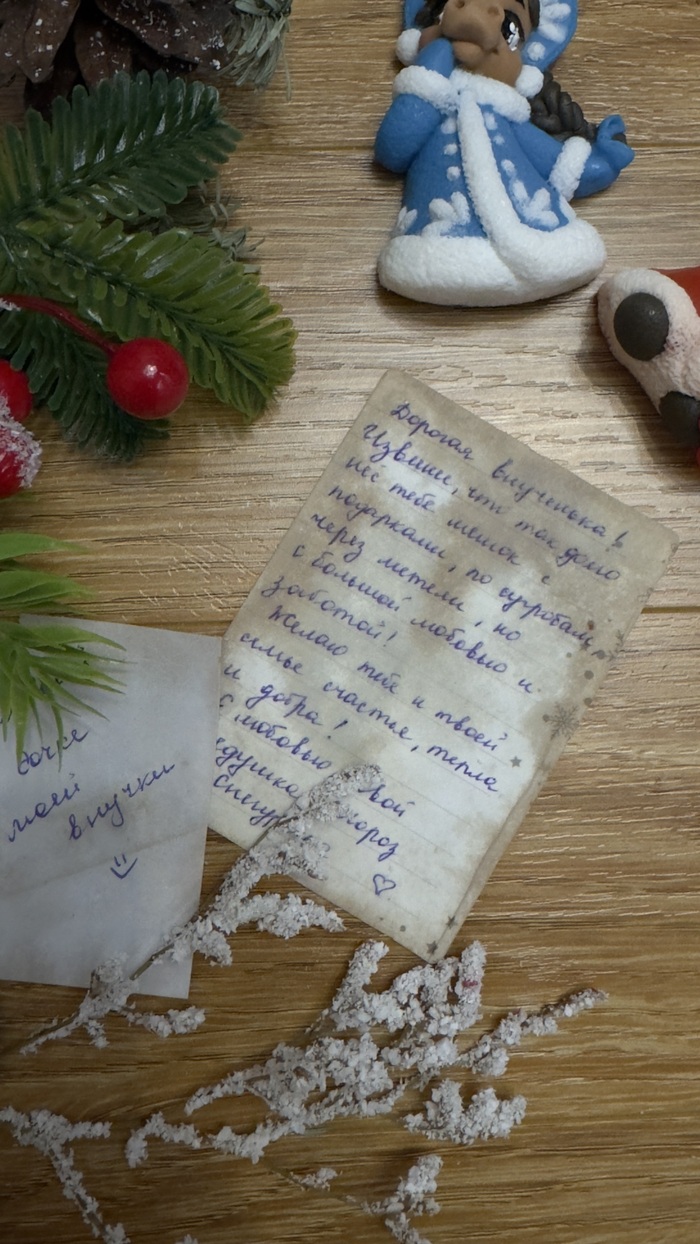 Дорогая внученька!
Извини, что так долго
нёс тебе мешок с
подарками, по сугробам,
через метели, но
с большой любовью и
заботой!
Желаю тебе и твоей
семье счастья, тепла
и добра!
С любовью
Мороз
Дочке
моей
внучки